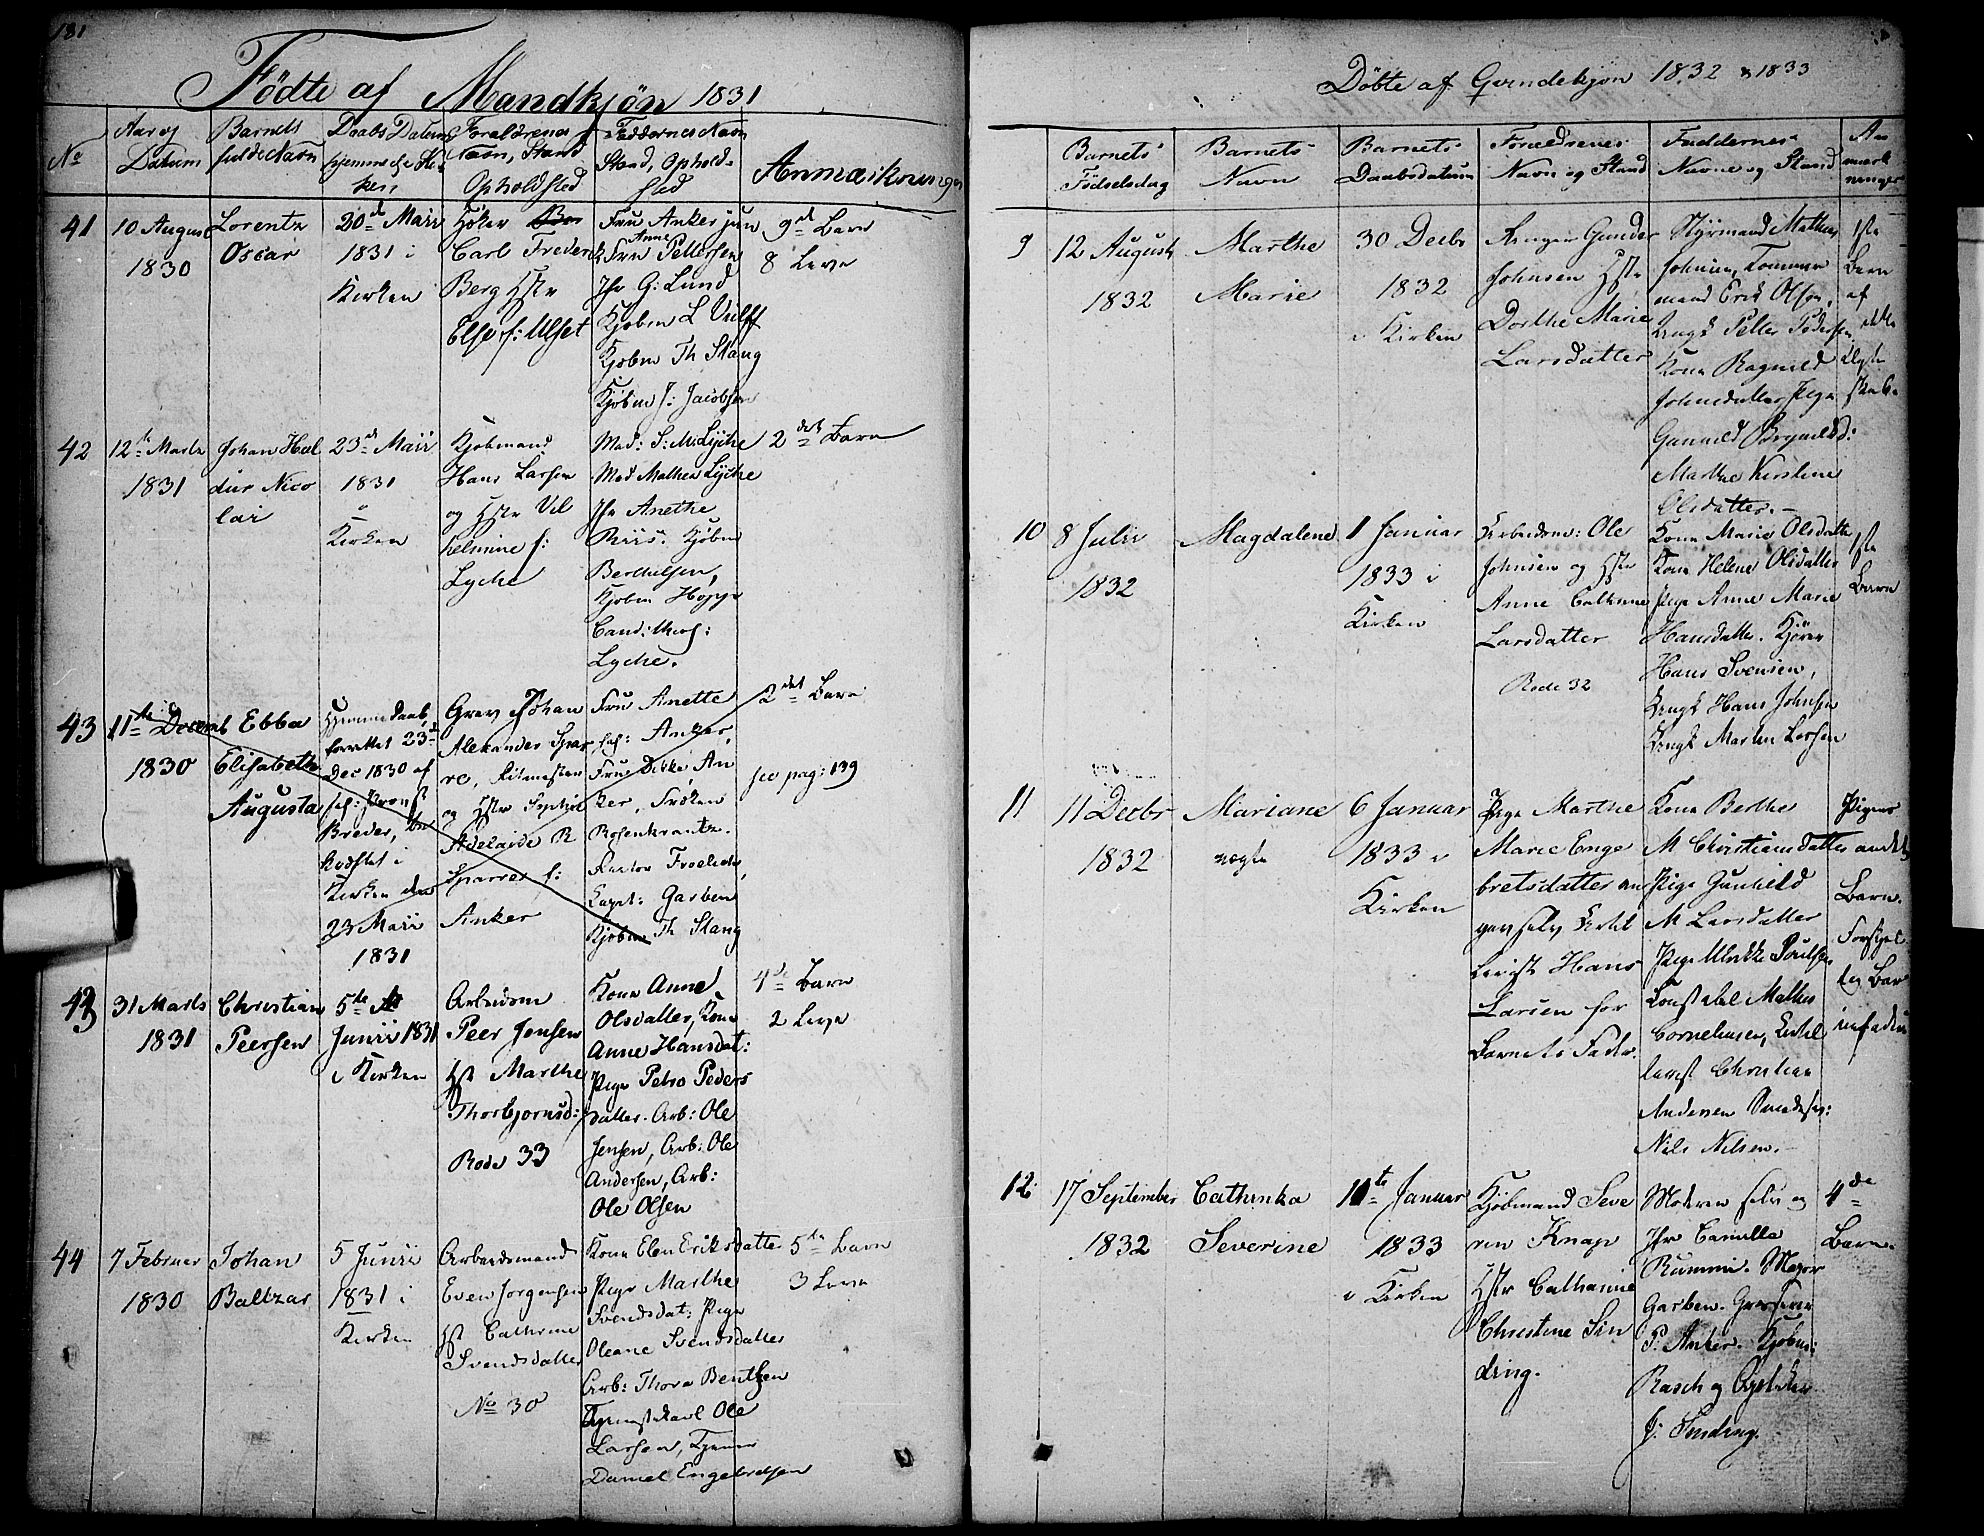 181
Födte af Mandkjøn 1831
No
Aar og Datum
Barnets fulde Navn
Daabs Datum hjemme ell Kirken
Forældrenes Navn, Stand Opholdsted
Faddernes Navn Stand, Opholdsted
Anmærkninger
41
10 August
1830
Lorentz
Oscar
20d Maii
1831 i
Kirken
Høker
Carl Frederik
Berg Hstr
Else f: Ulset
Fru Anker jun
Fru Anne Pettersen
Jfr G: Lund
Kjøbm L Vulff
Kjøbm Th Stang
Kjøbm J: Jacobsen
9d Barn
8 Leve
42
12te Marts
1831
Johan Hal
dur Nico
lai
23d Maii
1831
i
Kirken
Kjøbmand
Hans Larsen
og Hstr Vil
helmine f:
Lyche
Mad: S: M: Lyche
Mad Mathea Lyche
Jfr Anethe
Riis. Kjøbm
Berthelsen,
Kjøbm Hoppe
Cand: theol:
Lyche.
2det Barn
43
11te Decemb
1830
Ebba
Elisabeth
Augusta
Hjemmedaab,
forrettet 23d
Dec 1830 af
Provst
Breder,
stadfæstet i
Kirken den
23 Maii
1831
Grev Johan
Alexander Spar
re, Ritmester
og Hstr Sophie
Adelaide R
Sparres f:
Anker
Fru Anette
Anker,
Fru Dikke An
ker, Frøken
Rosenkrantz.
Pastor Froelich,
Capt: Garben
Kjøbm Th Stang
2det Barn
see pag: 139
43
31 Marts
1831
Christian
Peersen
5te
Junii 1831
i Kirken
Arbeidsm
Peer Jensen
Hst Marthe
Thorbjørnsd:
Rode 33
Kone Anne
Olsdatter, Kone
Anne Hansdat:
Pige Petro Peders
datter. Arb: Ole
Jensen, Arb: Ole
Andersen, Arb:
Ole Olsen
4de Barn
2 Leve
44
7 Februar
1830
Johan
Baltzar
5 Junii
1831 i
Kirken
Arbeidsmand
Even Jorgensen
Hst Cathrine
Svendsdatter
No 30
Kone Elen Eriksdatter
Pige Marthe
Svendsdat: Pige
Oleane Svendsdatter
Arb: Thora Bentzen
Tjenestekarl Ole
Larsen, Tjener
Daniel Engebretsen
5te Barn
3 Leve
Döbte af Qvindekjøn 1832 & 1833
Barnets Fødselsdag
Barnets Navn
Barnets Daabsdatum
Forældrenes Navn og Stand
Faddernes Navne og Stand
Anmærkninger
9
12 August
1832
Marthe
Marie
30 Decbr
1832
i Kirken
Gunder
Johnsen Hstr
Dorthe Marie
Larsdatter
Styrmand Mathias
Johnsen, Tømmer
mand Erik Olsen,
Ungk Petter Pedersen
Kone Ragnild
Johnsdatter Pige
Gunnild Brynilds:
Marthe Kirstine
Olsdatter.
1ste
Barn
af
dette
Ægte
skab
10
8 Julii
1832
Magdalene
1 Januar
1833 i
Kirken
Arbeidsm: Ole
Johnsen og Hstr
Anne Cathrine
Larsdatter
Rode 32
Kone Marie Olsdatter
Kone Helene Olsdatter
Pige Anne Marie
Hansdatter. Kjører
Hans Svensen,
Ungk Hans Johnsen
Ungk Marten Larsen
1ste
Barn
11
11 Decbr
1832
Mariane
uægte
6 Januar
1833 i
Kirken
Pige Marthe
Marie Enge
bretsdatter an
gav selv Enkel
Levist Hans
Larsen for
Barnets Fader.
Kone Berthe
M Christiansdatter
Pige Gunhild
M Larsdatter
Pige Ulrikke Poulsen
Constabel Mathis
Cornelius­en, Enkel
levist Christian
Andersen Smedesv:
Niels Nilsen.
Pigens
andet
Barn.
12
17 September
1832
Cathinka
Severine
11te Januar
1833
i Kirken
Kjøbmand Seve
ren Knap
Hstr Cathrine
Christine Sin
ding.
Moderen selv og
Jfr Camilla
Rummi. Major
Garben. Grosserer
P. Anker. Kjøbm:
Rasch og Apotheker
J: Sinding.
4de
Barn.